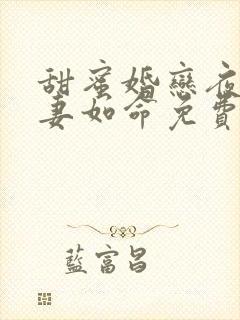 甜蜜婚戀夜
妻如命免費
藍富昌